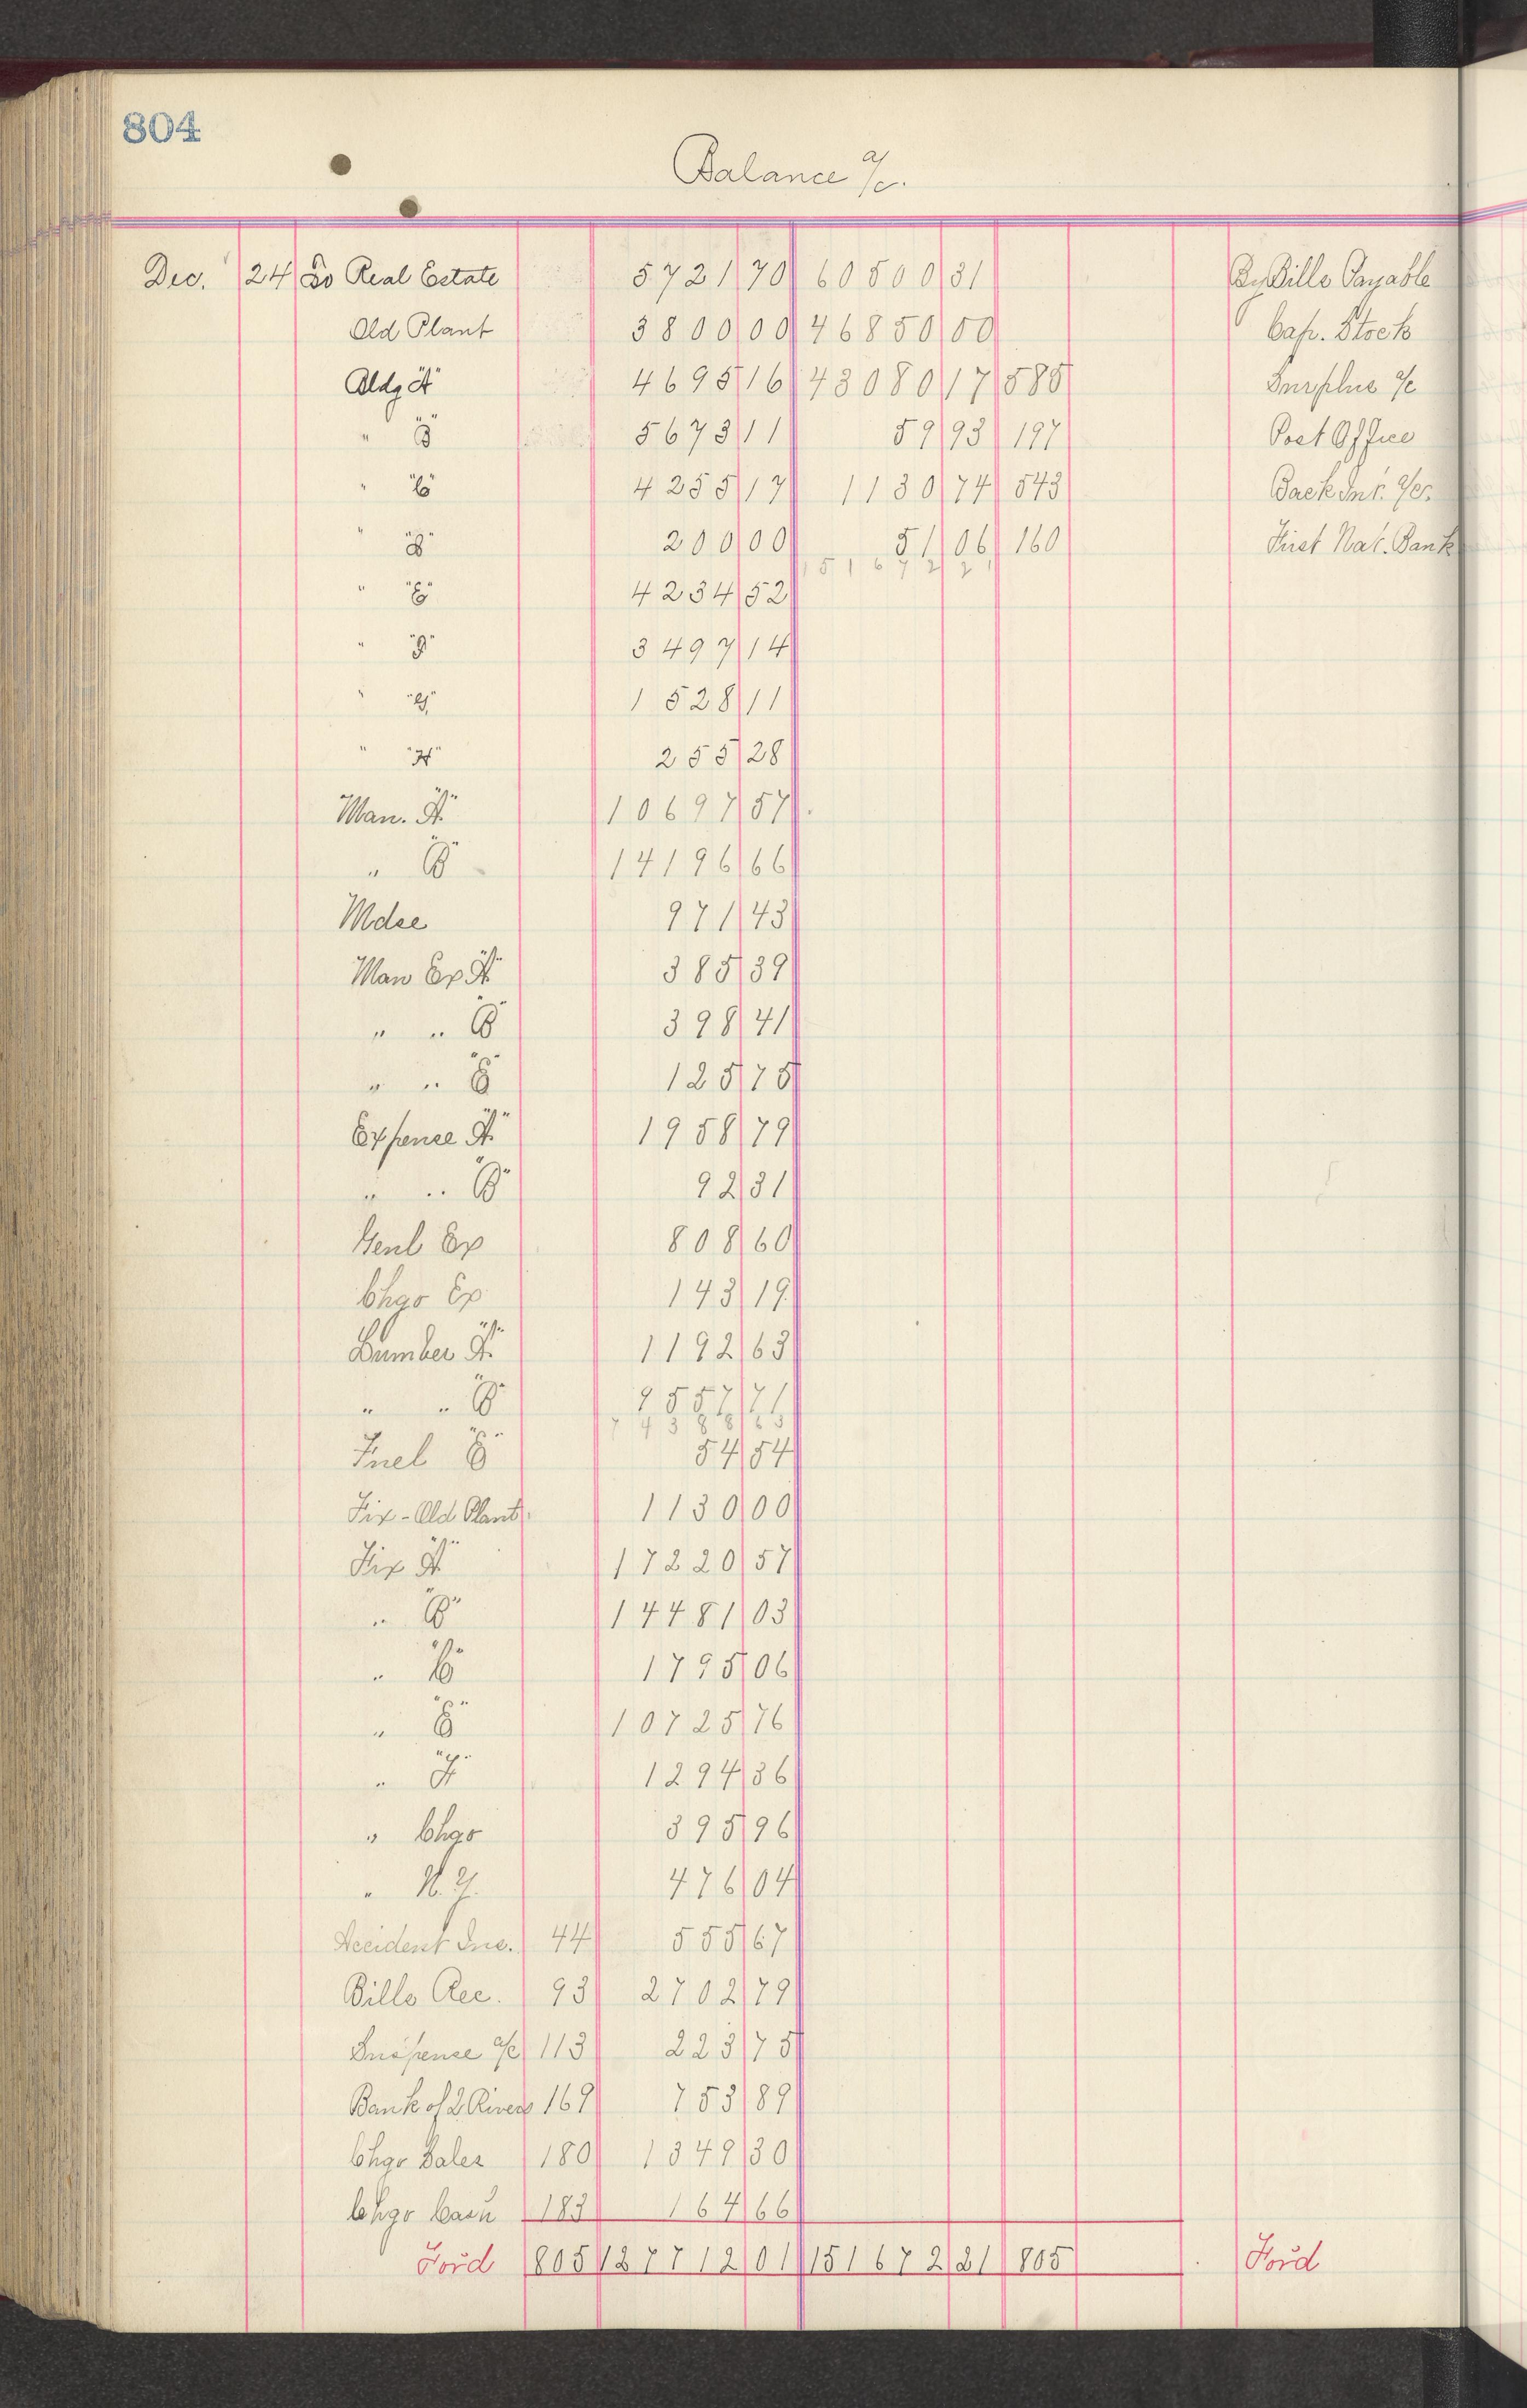 804
Balance a/c.
Dec. 24 To Real Estate 5721 70 60500 31 By Bills Payable
Old Plant 3800 00 46850 00 Cap. Stock
Bldg "A" 4695 16 43080 17 585 Surplus a/c
" "B" 5673 11 59 93 197 Post Office
" "C" 4255 17 1130 74 543 Back Int. a/cs.
" "D" 200 00 51 06 160 First Nat. Bank
151672 21
" "E" 4234 52
" "F" 3497 14
" "G" 1528 11
" "H" 255 28
Man. "A" 10697 57
" "B" 14196 66
Mdse 971 43
Man Ex "A" 385 39
" " "B" 398 41
" " "E" 125 75
Expense "A" 1958 79
" " "B" 92 31
Genl Ex 808 60
Chgo Ex 143 19
Lumber "A" 1192 63
" " "B" 9557 71
74388 63
Fuel "E" 54 54
Fix - Old Plant 1130 00
Fix "A" 17220 57
" "B" 14481 03
" "C" 1795 06
" "E" 10725 76
" "F" 1294 36
" Chgo 395 96
" N.Y. 476 04
Accident Ins. 44 555 67
Bills Rec. 93 2702 79
Suspense a/c 113 223 75
Bank of 2 Rivers 169 753 89
Chgo Sales 180 1349 30
Chgo Cash 183 164 66
Ford 805 127712 01 151672 21 805 Ford